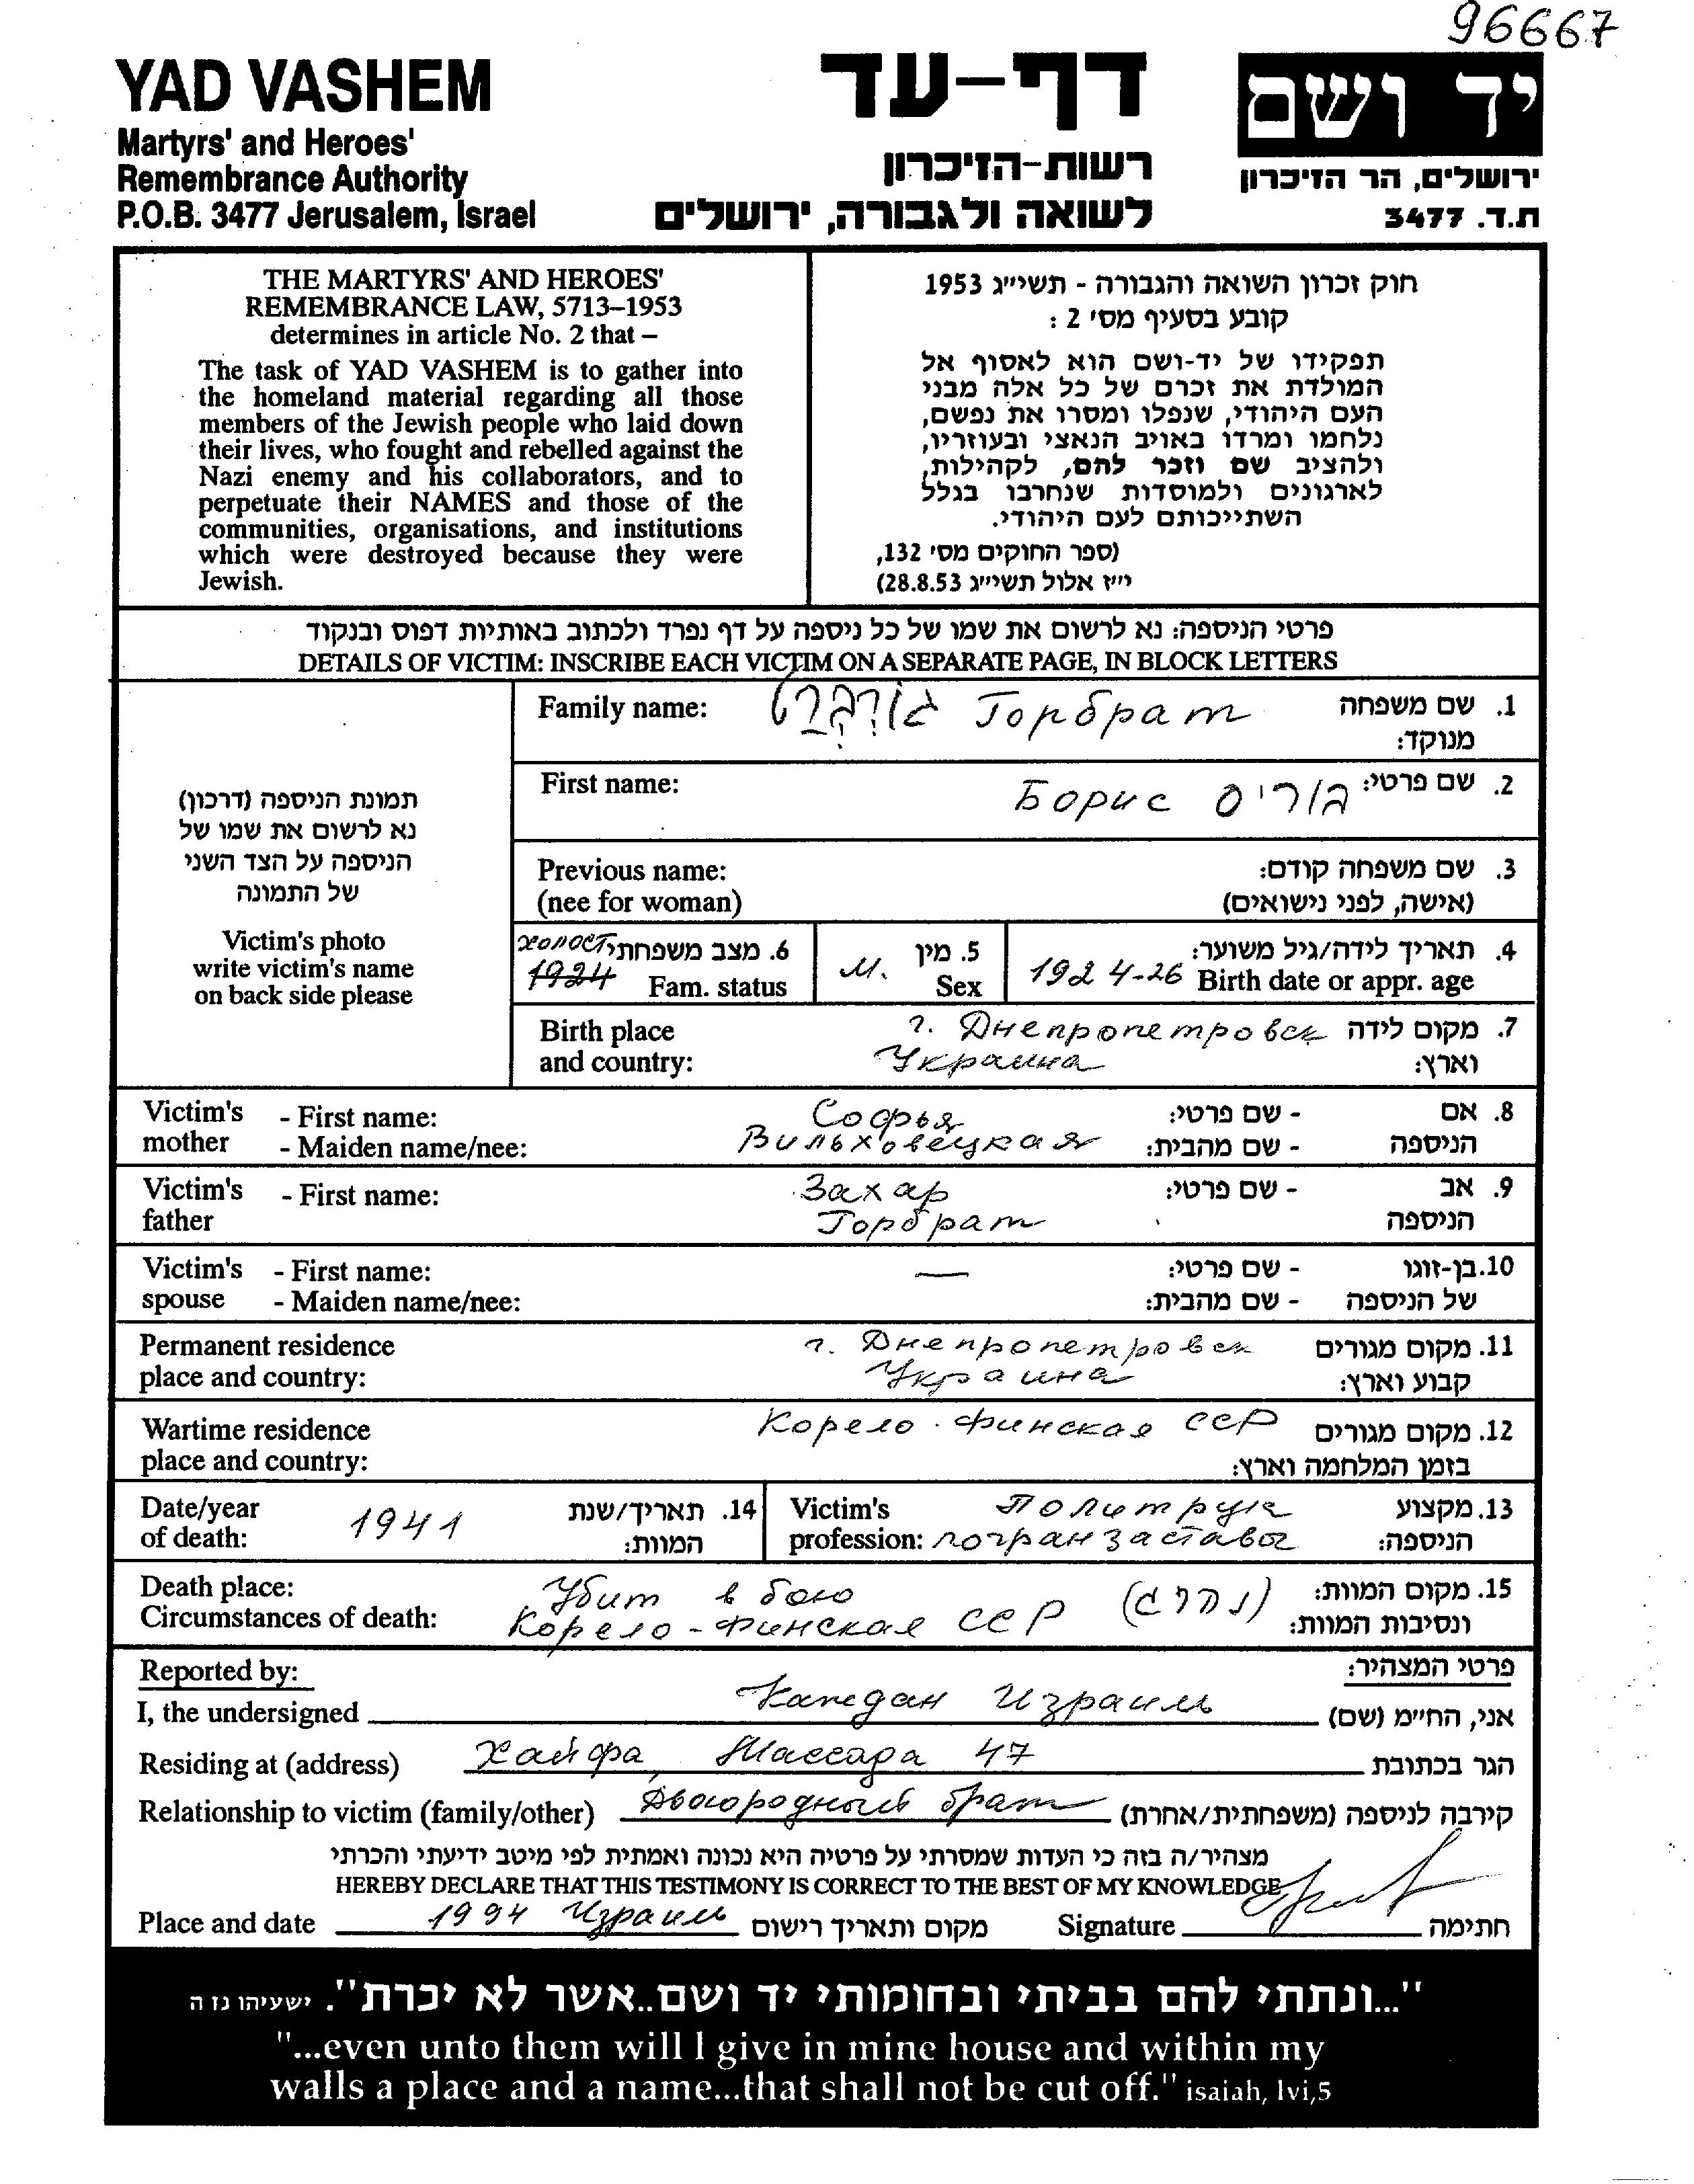 96667
YAD VASHEM
Martyrs' and Heroes'
Remembrance Authority
P.O.B. 3477 Jerusalem, Israel
דף-עד
רשות-הזיכרון
לשואה ולגבורה, ירושלים
יד ושם
ירושלים, הר הזיכרון
ת.ד. 3477
THE MARTYRS' AND HEROES'
REMEMBRANCE LAW, 5713–1953
determines in article No. 2 that –
The task of YAD VASHEM is to gather into
the homeland material regarding all those
members of the Jewish people who laid down
their lives, who fought and rebelled against the
Nazi enemy and his collaborators, and to
perpetuate their NAMES and those of the
communities, organisations, and institutions
which were destroyed because they were
Jewish.
חוק זכרון השואה והגבורה - תשי״ג 1953
קובע בסעיף מס׳ 2 :
תפקידו של יד-ושם הוא לאסוף אל
המולדת את זכרם של כל אלה מבני
העם היהודי, שנפלו ומסרו את נפשם,
נלחמו ומרדו באויב הנאצי ובעוזריו,
ולהציב שם וזכר להם, לקהילות,
לארגונים ולמוסדות שנחרבו בגלל
השתייכותם לעם היהודי.
(ספר החוקים מס׳ 132,
י״ז אלול תשי״ג 28.8.53)
פרטי הניספה: נא לרשום את שמו של כל ניספה על דף נפרד ולכתוב באותיות דפוס ובנקוד
DETAILS OF VICTIM: INSCRIBE EACH VICTIM ON A SEPARATE PAGE, IN BLOCK LETTERS
תמונת הניספה (דרכון)
נא לרשום את שמו של
הניספה על הצד השני
של התמונה
Victim's photo
write victim's name
on back side please
Family name: Горбрат 1. שם משפחה
מנוקד:
First name: Борис בוריס 2. שם פרטי:
Previous name: 3. שם משפחה קודם:
(nee for woman) (אישה, לפני נישואים)
холост 6. מצב משפחתי
1924 Fam. status
М. 5. מין
Sex
4. תאריך לידה/גיל משוער:
1924-26 Birth date or appr. age
Birth place г. Днепропетровск 7. מקום לידה
and country: Украина וארץ:
Victim's - First name: Софья - שם פרטי: 8. אם
mother - Maiden name/nee: Вильховецкая - שם מהבית: הניספה
Victim's - First name: Захар - שם פרטי: 9. אב
father Горбрат הניספה
Victim's - First name: — - שם פרטי: 10. בן-זוגו
spouse - Maiden name/nee: - שם מהבית: של הניספה
Permanent residence г. Днепропетровск 11. מקום מגורים
place and country: Украина קבוע וארץ:
Wartime residence Корело-Финская ССР 12. מקום מגורים
place and country: בזמן המלחמה וארץ:
Date/year 1941 14. תאריך/שנת
of death: המוות:
Victim's Политрук 13. מקצוע
profession: погранзаставы הניספה:
Death place: Убит в бою (נהרג) 15. מקום המוות:
Circumstances of death: Корело-Финская ССР ונסיבות המוות:
Reported by: פרטי המצהיר:
I, the undersigned Капедан Израиль אני, החי״מ (שם)
Residing at (address) Хайфа, Массара 47 הגר בכתובת
Relationship to victim (family/other) Двоюродный брат קירבה לניספה (משפחתית/אחרת)
מצהיר/ה בזה כי העדות שמסרתי על פרטיה היא נכונה ואמתית לפי מיטב ידיעתי והכרתי
HEREBY DECLARE THAT THIS TESTIMONY IS CORRECT TO THE BEST OF MY KNOWLEDGE
Place and date 1994 Израиль מקום ותאריך רישום Signature חתימה
"...ונתתי להם בביתי ובחומותי יד ושם..אשר לא יכרת". ישעיהו נז ה
"...even unto them will I give in mine house and within my
walls a place and a name...that shall not be cut off." isaiah, lvi,5